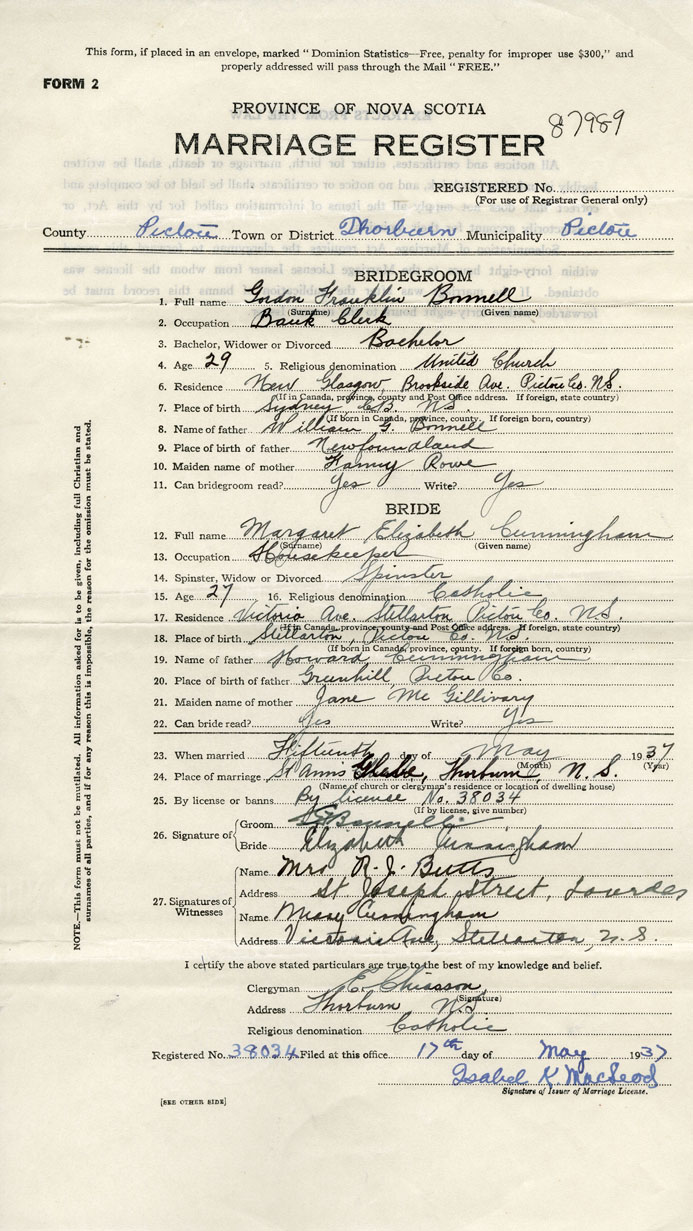 This form, if placed in an envelope, marked "Dominion Statistics—Free, penalty for improper use $300," and
properly addressed will pass through the Mail "FREE."
FORM 2
PROVINCE OF NOVA SCOTIA
87989
MARRIAGE REGISTER
REGISTERED No.
(For use of Registrar General only)
County Pictou Town or District Thorburn Municipality Pictou
BRIDEGROOM
1. Full name Gordon Franklin Bonnell
(Surname) (Given name)
2. Occupation Bank Clerk
3. Bachelor, Widower or Divorced Bachelor
4. Age 29 5. Religious denomination United Church
6. Residence New Glasgow, Brookside Ave. Pictou Co. N.S.
(If in Canada, province, county and Post Office address. If foreign, state country)
7. Place of birth Sydney C.B. N.S.
(If born in Canada, province, county. If foreign born, country)
8. Name of father William G. Bonnell
9. Place of birth of father Newfoundland
10. Maiden name of mother Fanny Rowe
11. Can bridegroom read? Yes Write? Yes
BRIDE
12. Full name Margaret Elizabeth Cunningham
(Surname) (Given name)
13. Occupation Housekeeper
14. Spinster, Widow or Divorced Spinster
15. Age 27 16. Religious denomination Catholic
17. Residence Victoria Ave. Stellarton, Pictou Co. N.S.
(If in Canada, province, county and Post Office address. If foreign, state country)
18. Place of birth Stellarton, Pictou Co. N.S.
(If born in Canada, province, county. If foreign born, country)
19. Name of father Howard Cunningham
20. Place of birth of father Greenhill, Pictou Co.
21. Maiden name of mother Jane McGillivary
22. Can bride read? Yes Write? Yes
23. When married Fifteenth day of May 1937
(Month) (Year)
24. Place of marriage St Ann's Glebe, Thorburn, N.S.
(Name of church or clergyman's residence or location of dwelling house)
25. By license or banns By license No. 38034
(If by license, give number)
26. Signature of Groom Bonnell
Bride Elizabeth Cunningham
27. Signatures of Witnesses
Name Mrs R. J. Butts
Address St Joseph Street, Lourdes
Name Missy Cunningham
Address Victoria Ave, Stellarton, N.S.
I certify the above stated particulars are true to the best of my knowledge and belief.
Clergyman E. Chiasson,
(Signature)
Address Thorburn N.S.
Religious denomination Catholic
Registered No. 38034 Filed at this office 17th day of May 1937
Isabel K MacLeod
Signature of Issuer of Marriage License.
[SEE OTHER SIDE]
NOTE.—This form must not be mutilated. All information asked for is to be given, including full Christian and
surnames of all parties, and if for any reason this is impossible, the reason for the omission must be stated.